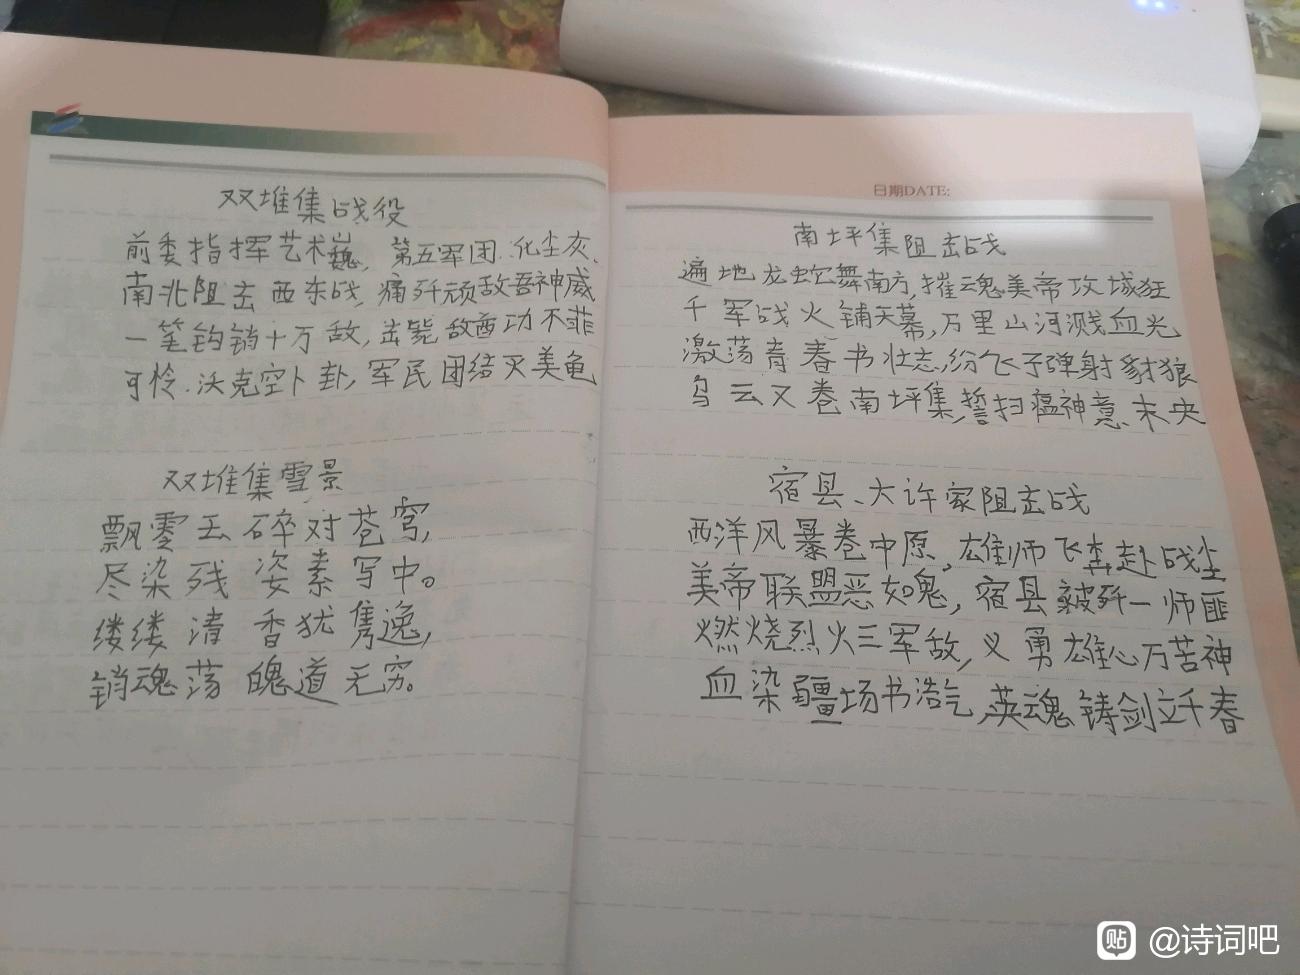 双堆集战役
前委指挥艺术巍，第五军团化尘灰、
南北阻击西东战，痛歼顽敌吾神威
一笔钩销十万敌，击毙敌酋功不菲
可怜沃克空卜卦，军民团结灭美龟
双堆集雪景
飘零玉碎对苍穹，
尽染残姿素写中。
缕缕清香犹隽逸，
销魂荡魄道无穷。
日期DATE:
南坪集阻击战
遍地龙蛇舞南方，摧魂美帝攻城狂
千军战火铺天幕，万里山河溅血光
激荡青春书壮志，纷飞子弹射豺狼
乌云又卷南坪集，誓扫瘟神意未央
宿县、大许家阻击战
西洋风暴卷中愿，雄师飞奔赴战尘
美帝联盟恶如鬼，宿县被歼一师匪
燃烧烈火三军敌，义勇雄心万苦神
血染疆场书浩气，英魂铸剑立千春
贴 @诗词吧